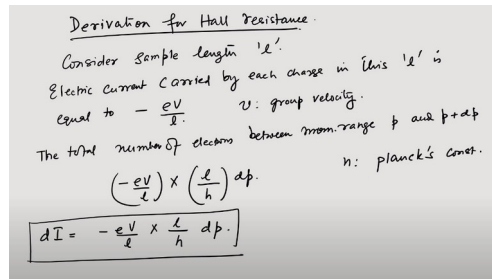 Derivation for Hall resistance.
Consider sample length 'l'.
Electric current carried by each charge in this 'l' is
equal to - ev/l. v: group velocity.
The total number of electrons between mom. range p and p+dp
(-ev/l) × (l/h) dp. h: planck's const.
dI = - ev/l × l/h dp.